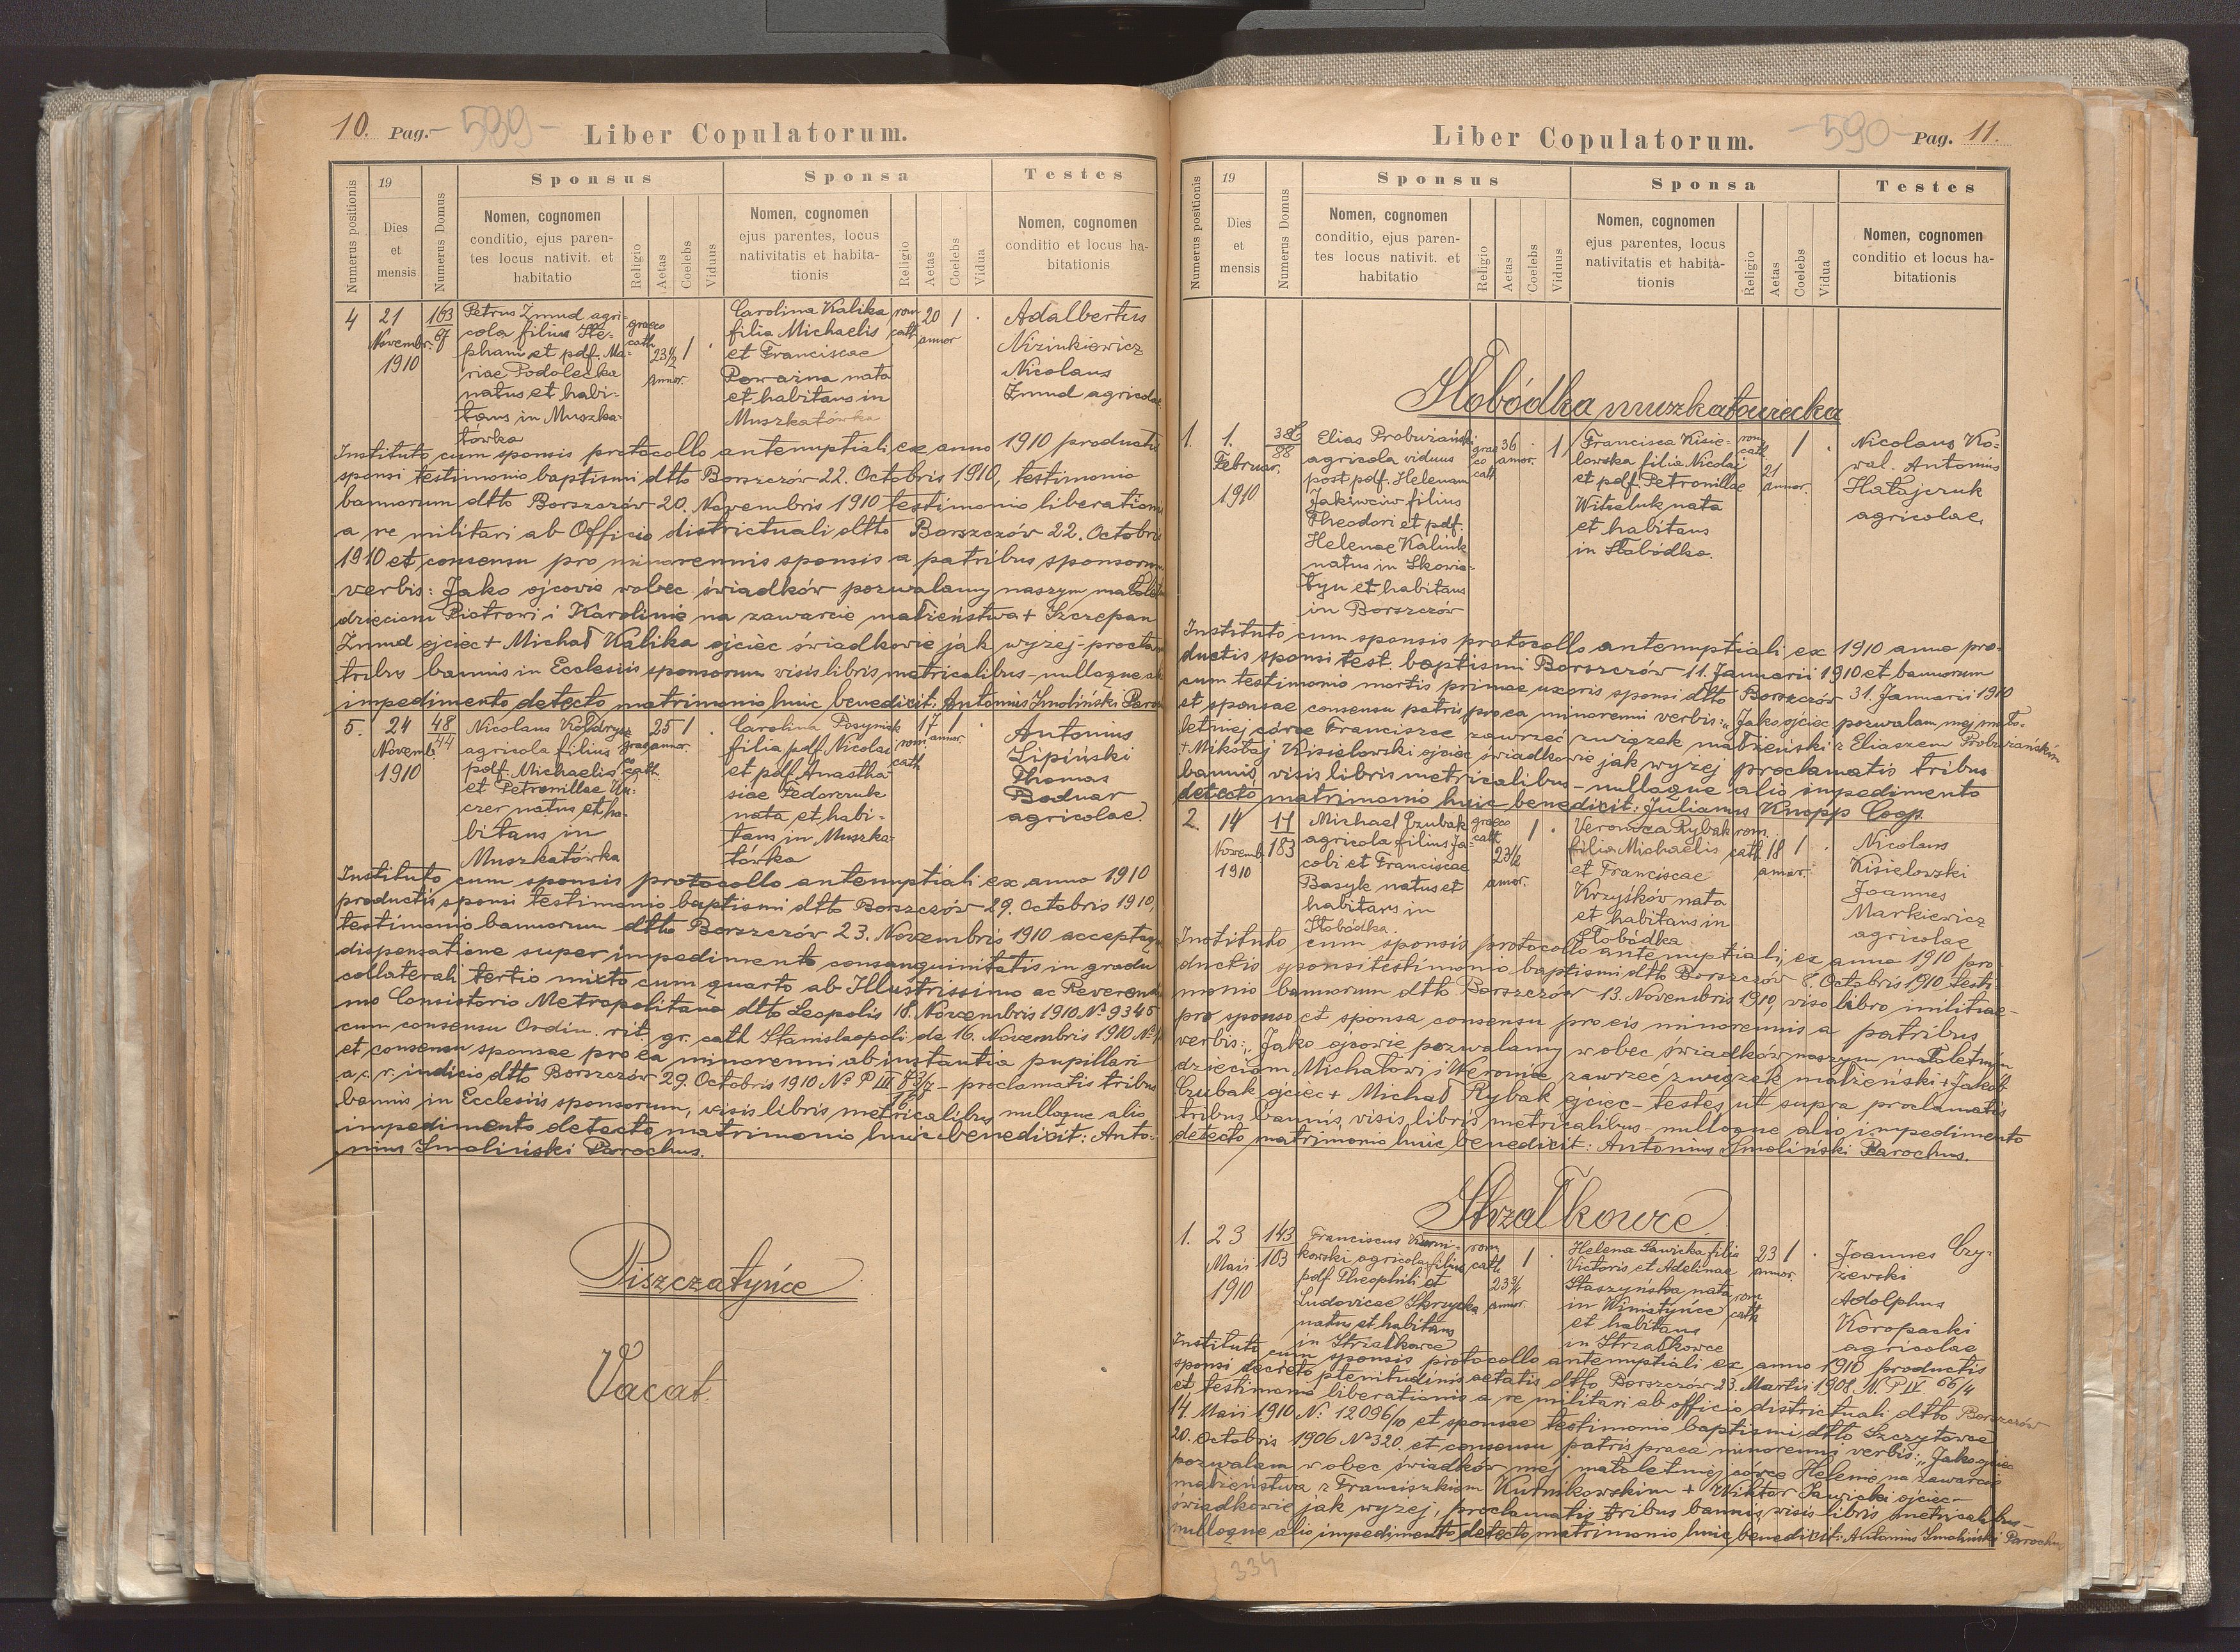 10. Pag. - 589 -
Liber Copulatorum.
Numerus positionis
19
Dies
et
mensis
Numerus Domus
Sponsus
Nomen, cognomen
conditio, ejus paren-
tes locus nativit. et
habitatio
Religio
Aetas
Coelebs
Viduus
Sponsa
Nomen, cognomen
ejus parentes, locus
nativitatis et habita-
tionis
Religio
Aetas
Coelebs
Vidua
Testes
Nomen, cognomen
conditio et locus ha-
bitationis
4
21
Novembr.
1910
163
67
Petrus Żmud agri-
cola filius Ste-
phani et pdf. Ma-
riae Podolecka
natus et habi-
tans in Muszka-
tówka
graeco
cath
23½
annor.
1
Carolina Kalika
filia Michaelis
et Franciscae
Poważna nata
et habitans in
Muszkatówka
rom
cath
20
annor
1
Adalbertus
Nizinkiewicz
Nicolaus
Żmud agricolae
Instituto cum sponsis protocollo antenuptiali ex anno 1910 productis
sponsi testimonio baptismi dtto Borszczów 22. Octobris 1910, testimonio
bannorum dtto Borszczów 20. Novembris 1910 testimonio liberationis
a re militari ab Officio districtuali dtto Borszczów 22. Octobris
1910 et consensu pro minorennis sponsis a patribus sponsorum
verbis: Jako ojcowie wobec świadków pozwalamy naszym małolet
dzieciom Piotrowi i Karolinie na zawarcie małżeństwa + Szczepan
Żmud ojciec + Michał Kalika ojciec świadkowie jak wyżej - proclam
tribus bannis in Ecclesiis sponsorum visis libris metricalibus - nulloque alio
impedimento detecto matrimonio huic benedixit: Antonius Smoliński Paroch
5.
24
Novemb.
1910
48
44
Nicolaus Kołdrysz
agricola filius
pdf. Michaelis
et Petronillae Ku-
czer natus et ha-
bitans in
Muszkatówka
graeco
cath.
25
annor.
1
Carolina Posyniak
filia pdf. Nicolai
et pdf. Anastha
siae Fedorczuk
nata et habi-
tans in Muszka-
tówka
rom.
cath
17
annor.
1
Antonius
Lipiński
Thomas
Bodnar
agricolae.
Instituto cum sponsis protocollo antenuptiali ex anno 1910
productis sponsi testimonio baptismi dtto Borszczów 29. Octobris 1910,
testimonio bannorum dtto Borszczów 23. Novembris 1910 acceptaque
dispensatione super impedimento consanguinitatis in gradu
collaterali tertio mixto cum quarto ab Illustrissimo ac Reverendis
mo Consistorio Metropolitano dtto Leopolis 18. Novembris 1910 No 9346
cum consensu Ordin. rit. gr. cath Stanislaopoli de 16. Novembris 1910 No
et consensu sponsae pro ea minorenni ab instantia pupillari
a c. r. indicio dtto Borszczów 29. Octobris 1910 No P III - proclamatis tribus
bannis in Ecclesiis sponsorum, visis libris metricalibus nulloque alio
impedimento detecto matrimonio huic benedixit: Anto-
nius Smoliński Parochus.
Piszczatyńce
Vacat.
Liber Copulatorum.
- 590 - Pag. 11.
Numerus positionis
19
Dies
et
mensis
Numerus Domus
Sponsus
Nomen, cognomen
conditio, ejus paren-
tes locus nativit. et
habitatio
Religio
Aetas
Coelebs
Viduus
Sponsa
Nomen, cognomen
ejus parentes, locus
nativitatis et habita-
tionis
Religio
Aetas
Coelebs
Vidua
Testes
Nomen, cognomen
conditio et locus ha-
bitationis
Słobódka muszkatowiecka
1.
1.
Februar.
1910
88
Elias Probużański
agricola viduus
post pdf. Helenam
Jakiwciw filius
Theodori et pdf.
Helenae Kaliuk
natus in Skowia-
tyn et habitans
in Borszczów
grae
co
cath
36
annor.
1
Francisca Kisie-
lowska filia Nicolai
et pdf. Petronillae
Witseluk nata
et habitans
in Słobódka.
rom
cath.
21
annor.
1
Nicolaus Ko-
wal. Antonius
Hałajczuk
agricolae.
Instituto cum sponsis protocollo antenuptiali ex 1910 anno pro-
ductis sponsi test. baptismi Borszczów 11. Januarii 1910 et bannorum
cum testimonio mortis primae uxoris sponsi dtto Borszczów 31. Januarii 1910
et sponsae consensu patris pro ea minorenni verbis: „Jako ojciec pozwalam mej mało-
letniej córce Franciszce zawrzeć związek małżeński z Eliaszem Probużańskim
+ Mikołaj Kisielowski ojciec świadkowie jak wyżej proclamatis tribus
bannis, visis libris metricalibus - nulloque alio impedimento
detecto matrimonio huic benedixit: Julianus Knopp Coop.
2.
14
Novemb.
1910
11
183
Michael Czubak
agricola filius Ja-
cobi et Franciscae
Basyk natus et
habitans in
Słobódka.
graeco
cath
23½
annor.
1
Veronica Rybak
filia Michaelis
et Franciscae
Krzyśków nata
et habitans in
Słobódka
rom.
cath
18
annor.
1
Nicolaus
Kisielowski
Joannes
Markiewicz
agricolae
Instituto cum sponsis protocollo antenuptiali, ex anno 1910 pro-
ductis sponsi testimonio baptismi dtto Borszczów 8. Octobris 1910 testi-
monio bannorum dtto Borszczów 13. Novembris 1910, viso libro militiae -
pro sponso et sponsa consensu pro eis minorennis a patribus
verbis: „Jako ojcowie pozwalamy wobec świadków naszym małoletnym
dzieciom Michałowi i Weronice zawrzeć związek małżeński + Jakób
Czubak ojciec + Michał Rybak ojciec - testes ut supra proclamatis
tribus bannis, visis libris metricalibus - nulloque alio impedimento
detecto matrimonio huic benedixit: Antonius Smoliński Parochus.
Strzałkowce
1.
23
Maii
1910
143
103
Franciscus Kurni-
kowski agricola filius
pdf. Theophili et
Ludovicae Skrzypka
natus et habitans
in Strzałkowce
rom
cath
23¾
annor.
1
Helena Sawicka filia
Victoris et Adelinae
Staszyńska nata
in Winiatyńce
et habitans
in Strzałkowce
rom
cath
23
annor.
1
Joannes Czy-
żewski
Adolphus
Koropacki
agricolae
Instituto cum sponsis protocollo antenuptiali ex anno 1910 productis
sponsi decreto plenitudinis aetatis dtto Borszczów 23. Martis 1908 N. P IV. 66/4
et testimonio liberationis a re militari ab officio districtuali dtto Borszczów
14. Maii 1910 N. 12096/10 et sponsae testimonio baptismi dtto Szczytowce
20. Octobris 1906 No 320 et consensu patris pro ea minorenni verbis: „Jako ojciec
pozwalam wobec świadków mej małoletniej córce Helenie na zawarcie
małżeństwa z Franciszkiem Kurnikowskim + Wiktor Sawicki ojciec -
świadkowie jak wyżej, proclamatis tribus bannis, visis libris metricalibus -
nulloque alio impedimento detecto, matrimonio huic benedixit: Antonius Smoliński Parochus
334